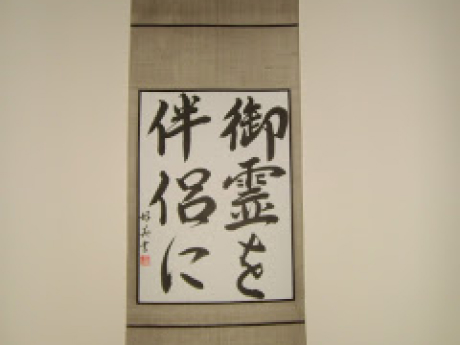 御霊を
伴侶に